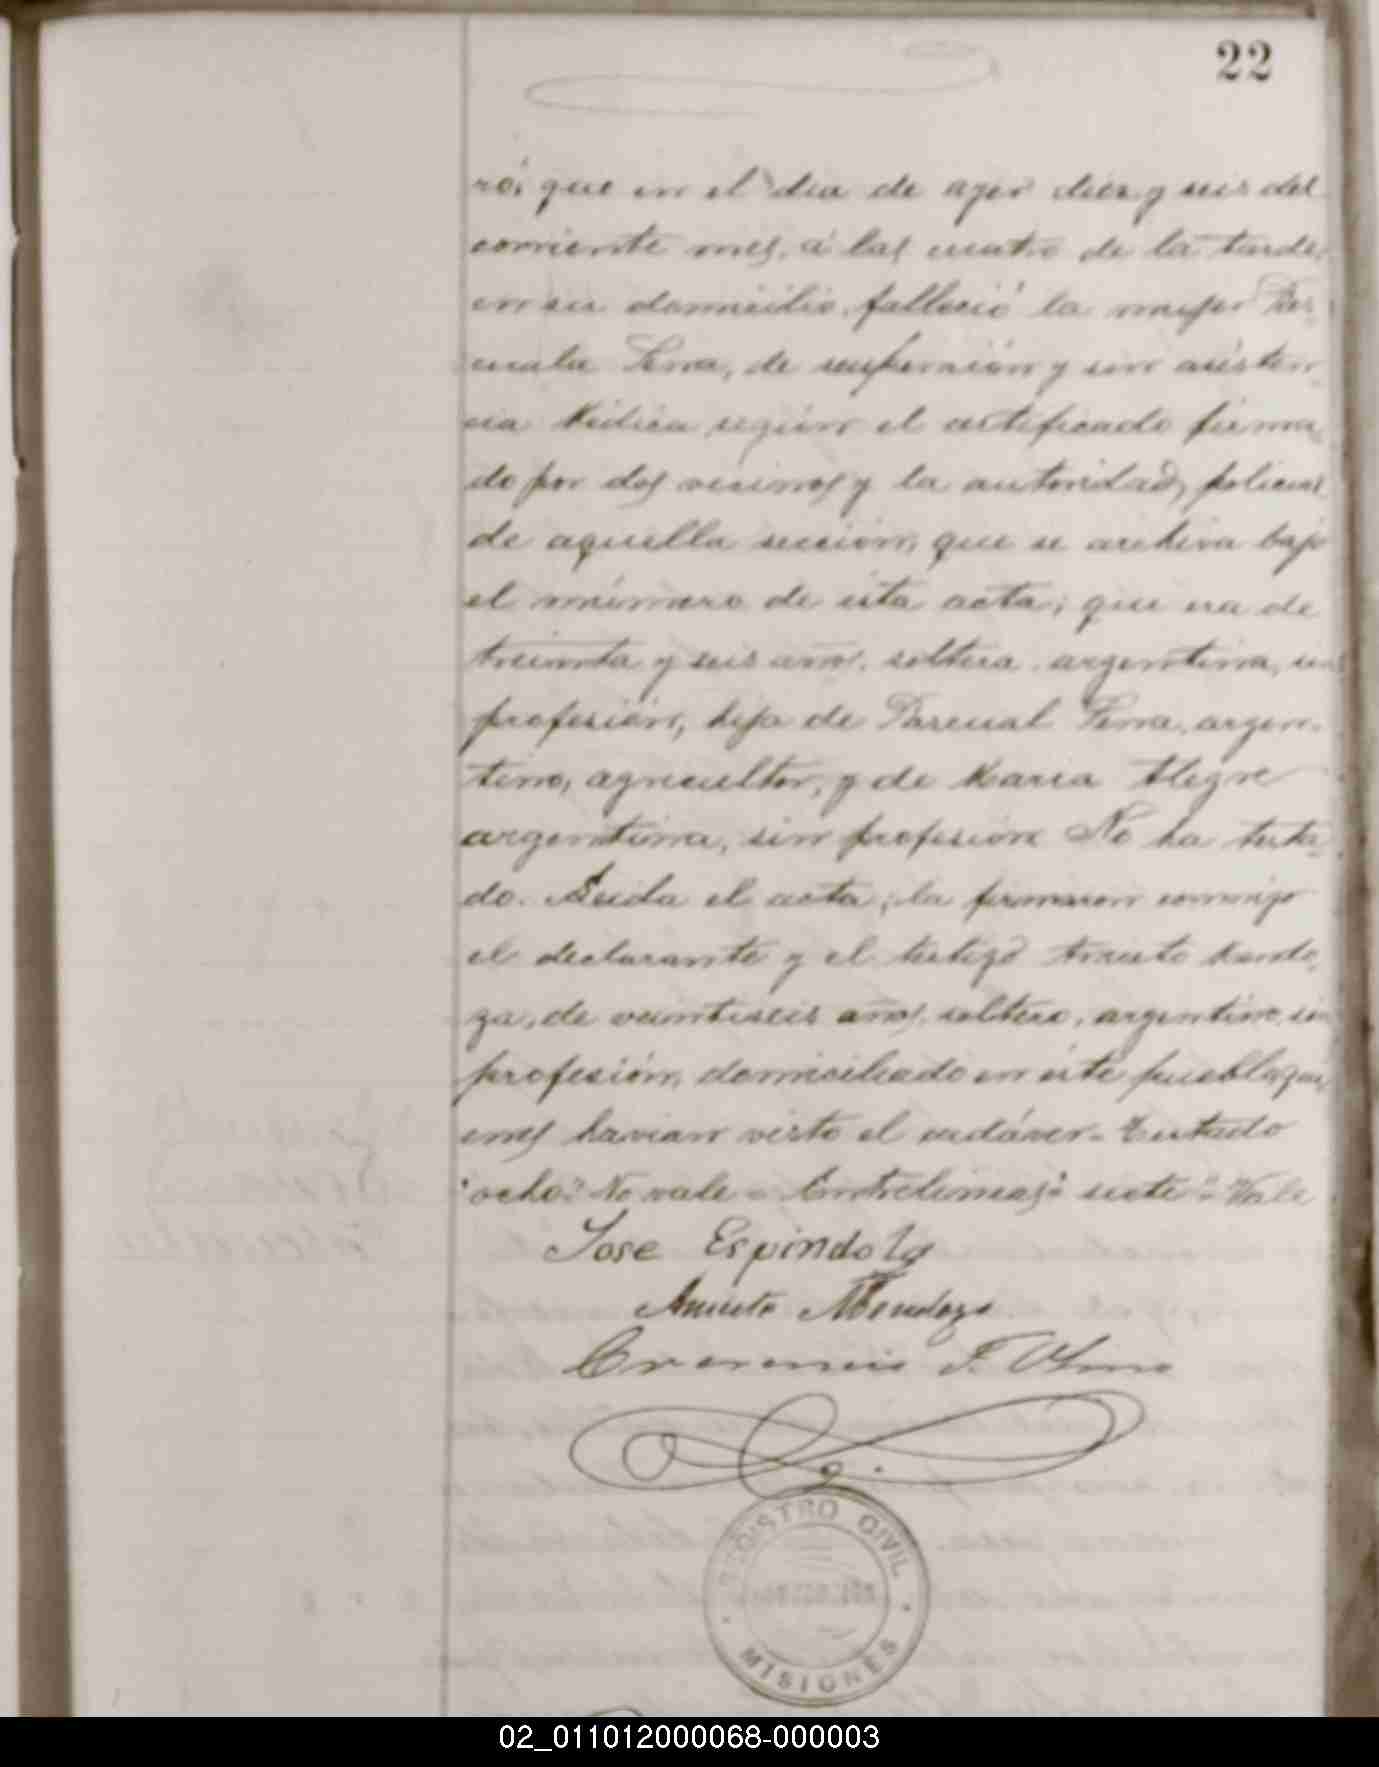 22
ró; que en el dia de ayer diez y seis del
corriente mes, á las cuatro de la tarde,
en su domicilio, falleció la mujer Pas-
cuala Serra, de supernsión y sin asisten-
cia Médica segun el certificado firma-
do por dos vecinos y la autoridad policial
de aquella sección, que se archiva bajo
el número de esta acta; que era de
treinta y seis años, soltera, argentina, sin
profesión, hija de Pascual Serra, argen-
tino, agricultor, y de Maria Alegre
argentina, sin profesión No ha testa-
do. Leida el acta, la firmaron conmigo
el declarante y el testigo Aniceto Mendo-
za, de veintiseis años, soltero, argentino, sin
profesión, domiciliado en éste pueblo, qui-
enes havian visto el cadáver - Testado
"ocho" No vale - Entrelineas "siete" - Vale
Jose Espindola
Aniceto Mendoza
REGISTRO CIVIL
MISIONES
02_011012000068-000003